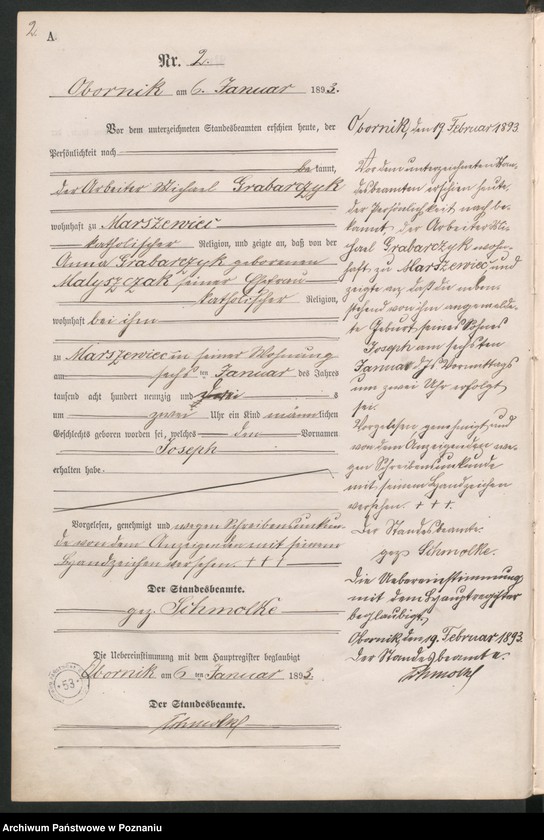 2.
A
Nr. 2.
Obornik am 6. Januar 1893.
Vor dem unterzeichneten Standesbeamten erschien heute, der
Persönlichkeit nach
be kannt,
der Arbeiter Michael Grabarczyk
wohnhaft zu Marszewiec
katholischer Religion, und zeigte an, daß von der
Anna Grabarczyk geborenen
Malyszczak seiner Ehefrau
katholischer Religion,
wohnhaft bei ihm
zu Marszewiec in seiner Wohnung
am sechsten Januar des Jahres
tausend acht hundert neunzig und drei s
um zwei Uhr ein Kind männlichen
Geschlechts geboren worden sei, welches den Vornamen
Joseph
erhalten habe.
Vorgelesen, genehmigt und wegen Schreibensunkun-
de von dem Anzeigenden mit seinem
Handzeichen versehen. + + +
Der Standesbeamte.
gez. Schmolke
Die Uebereinstimmung mit dem Hauptregister beglaubigt
Obornik am 6 ten Januar 1893.
Der Standesbeamte.
Schmolke
53
Obornik, den 19. Februar 1893
Vor dem unterzeichneten Stan-
desbeamten erschien heute,
der Persönlichkeit nach be-
kannt der Arbeiter Mi-
chael Grabarczyk wohn-
haft zu Marszewiec und
zeigte an, daß die neben-
stehend von ihm angemelde-
te Geburt seines Sohnes
Joseph am sechsten
Januar d. Js. Vormittags
um zwei Uhr erfolgt
sei.
Vorgelesen genehmigt und
von dem Anzeigenden we-
gen Schreibensunkunde
mit seinem Handzeichen
versehen. + + +
Der Standesbeamte.
gez. Schmolke.
Die Uebereinstimmung
mit dem Hauptregister
beglaubigt
Obornik, den 19. Februar 1893.
Der Standesbeamte.
Schmolke
Archiwum Państwowe w Poznaniu